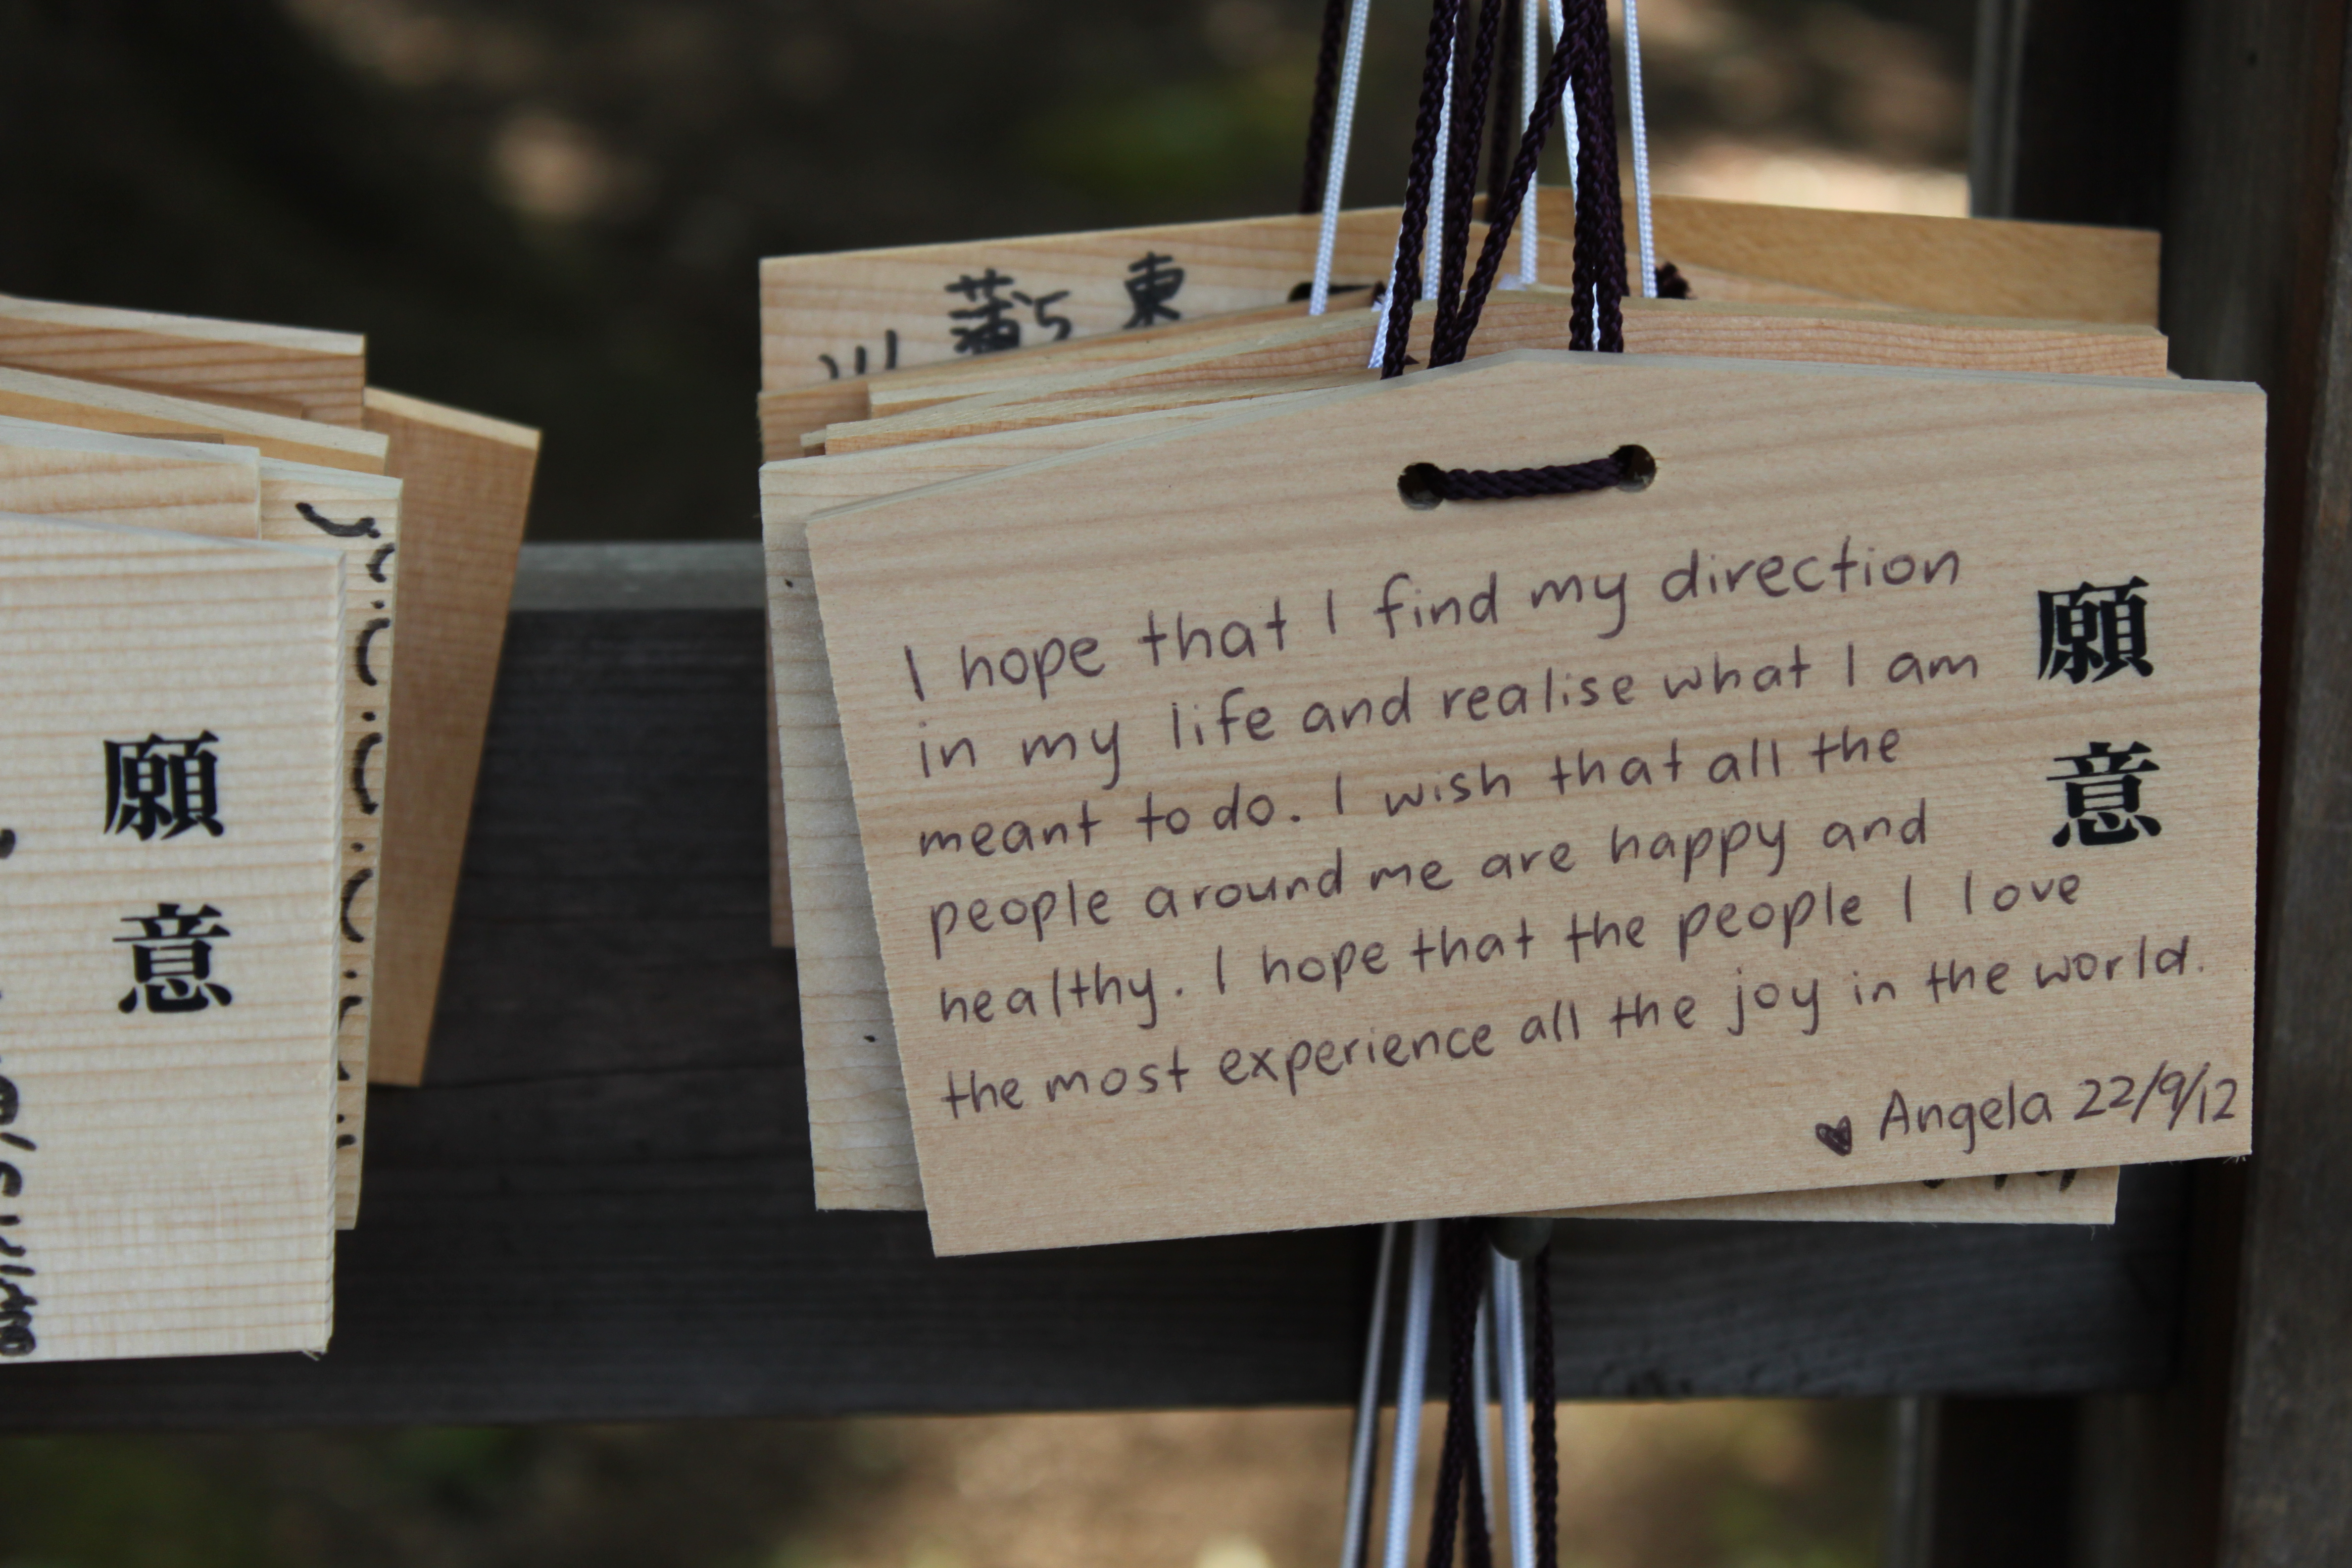 東
蒲
川
願
意
I hope that I find my direction
in my life and realise what I am
meant to do. I wish that all the
people around me are happy and
healthy. I hope that the people I love
the most experience all the joy in the world.
♥ Angela 22/9/12
願
意